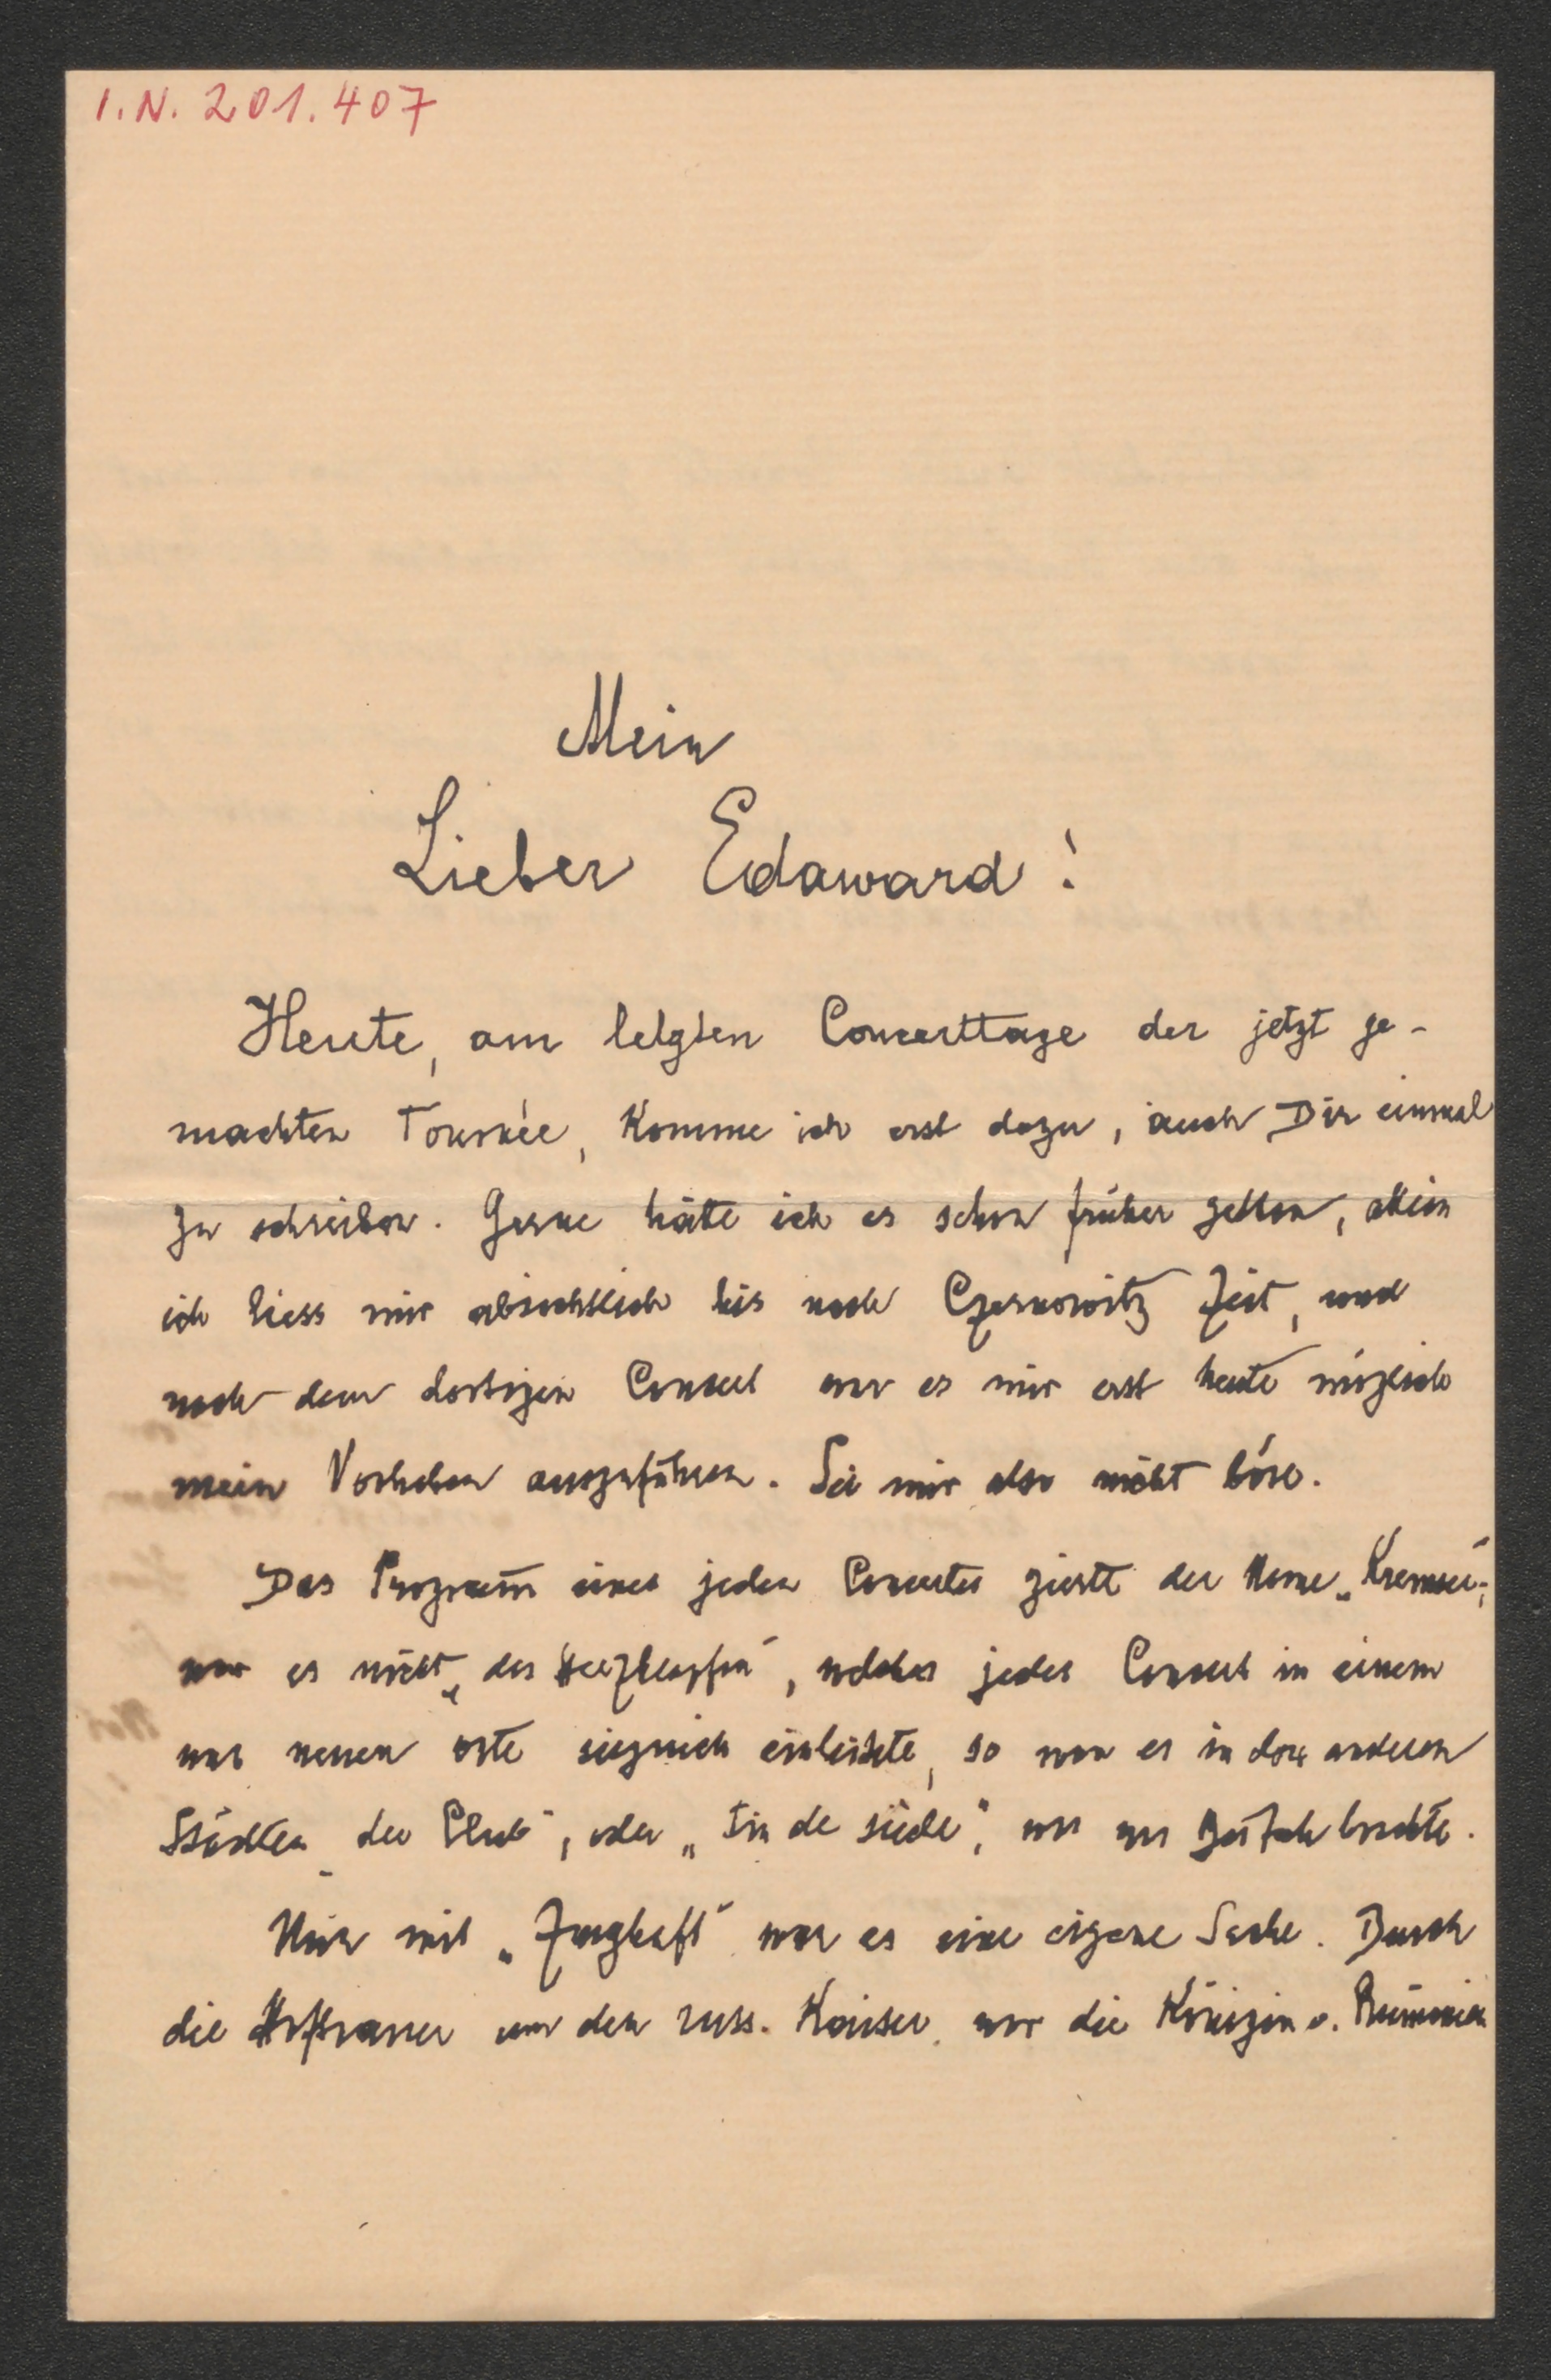 I.N. 201.407
Mein
Lieber Edaward!
Heute, am letzten Concerttage der jetzt ge-
machten Tournée, komme ich erst dazu, auch Dir einmal
zu schreiben. Gerne hätte ich es schon früher gethan, allein
ich liess mir absichtlich bis nach Czernowitz Zeit, und
nach dem dortigen Concert war es mir erst heute möglich
mein Vorhaben auszuführen. Sei mir also nicht böse.
Das Program eines jeden Concertes zierte der Name „Kremser";
war es nicht „das Herzklopfen", welches jedes Concert in einem
uns neuen Orte siegreich einleitete, so war es in den anderen
Städten „der Club", oder „Fin de siècle", was uns Beifall brachte.
Nur mit „Zaghaft" war es eine eigene Sache. Durch
die Hoftrauer um den russ. Kaiser, war die Königin v. Rumänien